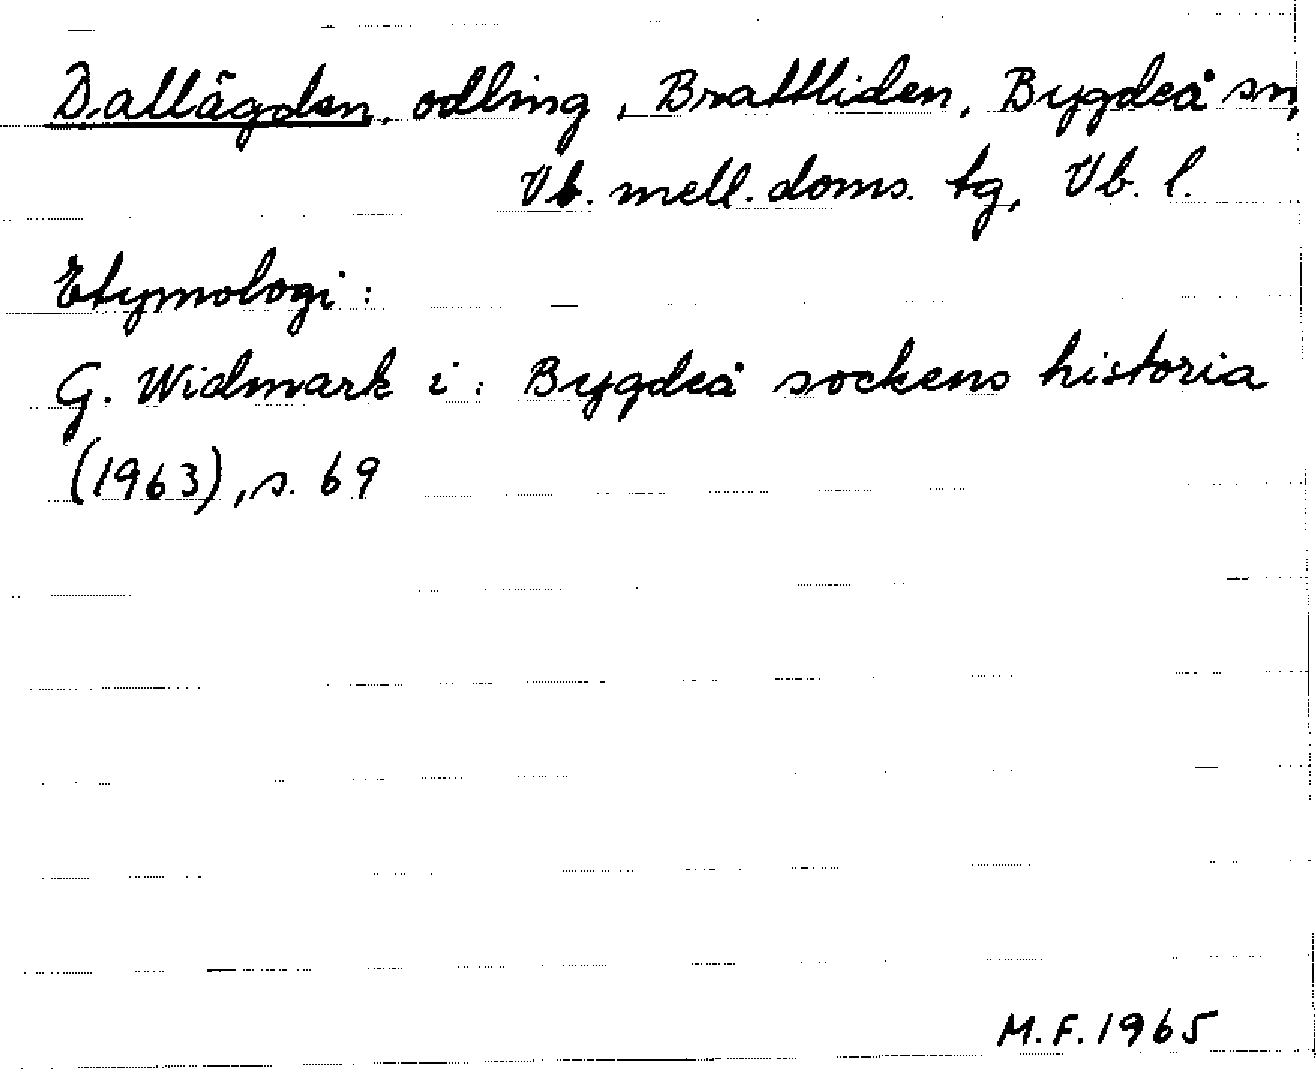 Dallägden, odling, Brattliden, Bygdeå sn,
Vb. mell. doms. tg, Vb. l.
Etymologi:
G. Widmark i: Bygdeå sockens historia
(1963), s. 69
M.F. 1965